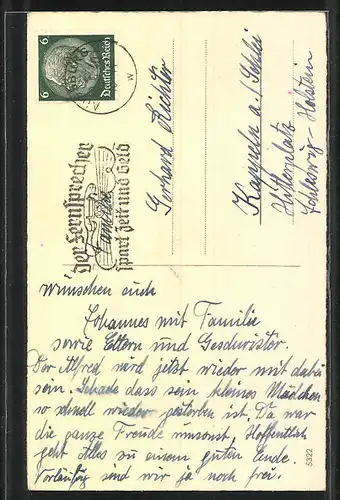 6 Deutsches Reich 6
Der Fernsprecher
spart Zeit und Geld
Gerhard Richter
Kappeln a./Schlei
Hüttenplatz
Schleswig-Holstein
Familie
wünschen euch
Johannes mit Familie
sowie Eltern und Geschwister.
Der Alfred wird jetzt wieder mit dabei
sein. Schade dass sein kleines Mädchen
so schnell wieder gestorben ist. Da war
die ganze Freude umsonst. Hoffentlich
geht Alles zu einem guten Ende.
Vorläufig sind wir ja noch frei.
5322